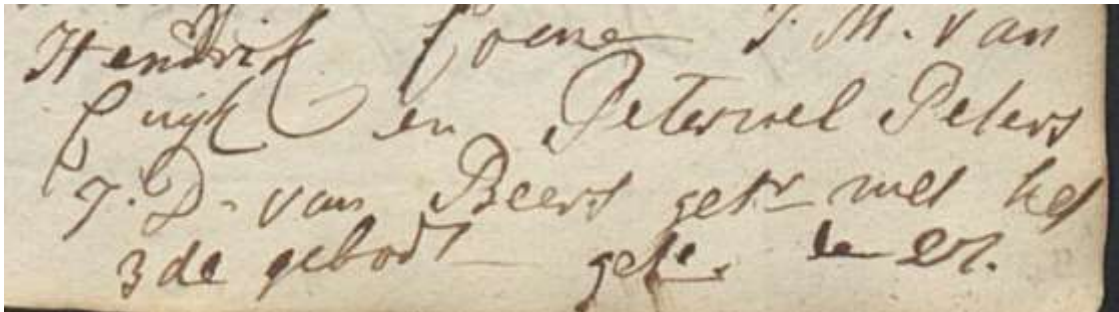 Hendrik Coene J. M. van
Cuijk en Peternel Peters
J. D. van Beers getr met het
3de gebodt getr. den 27.